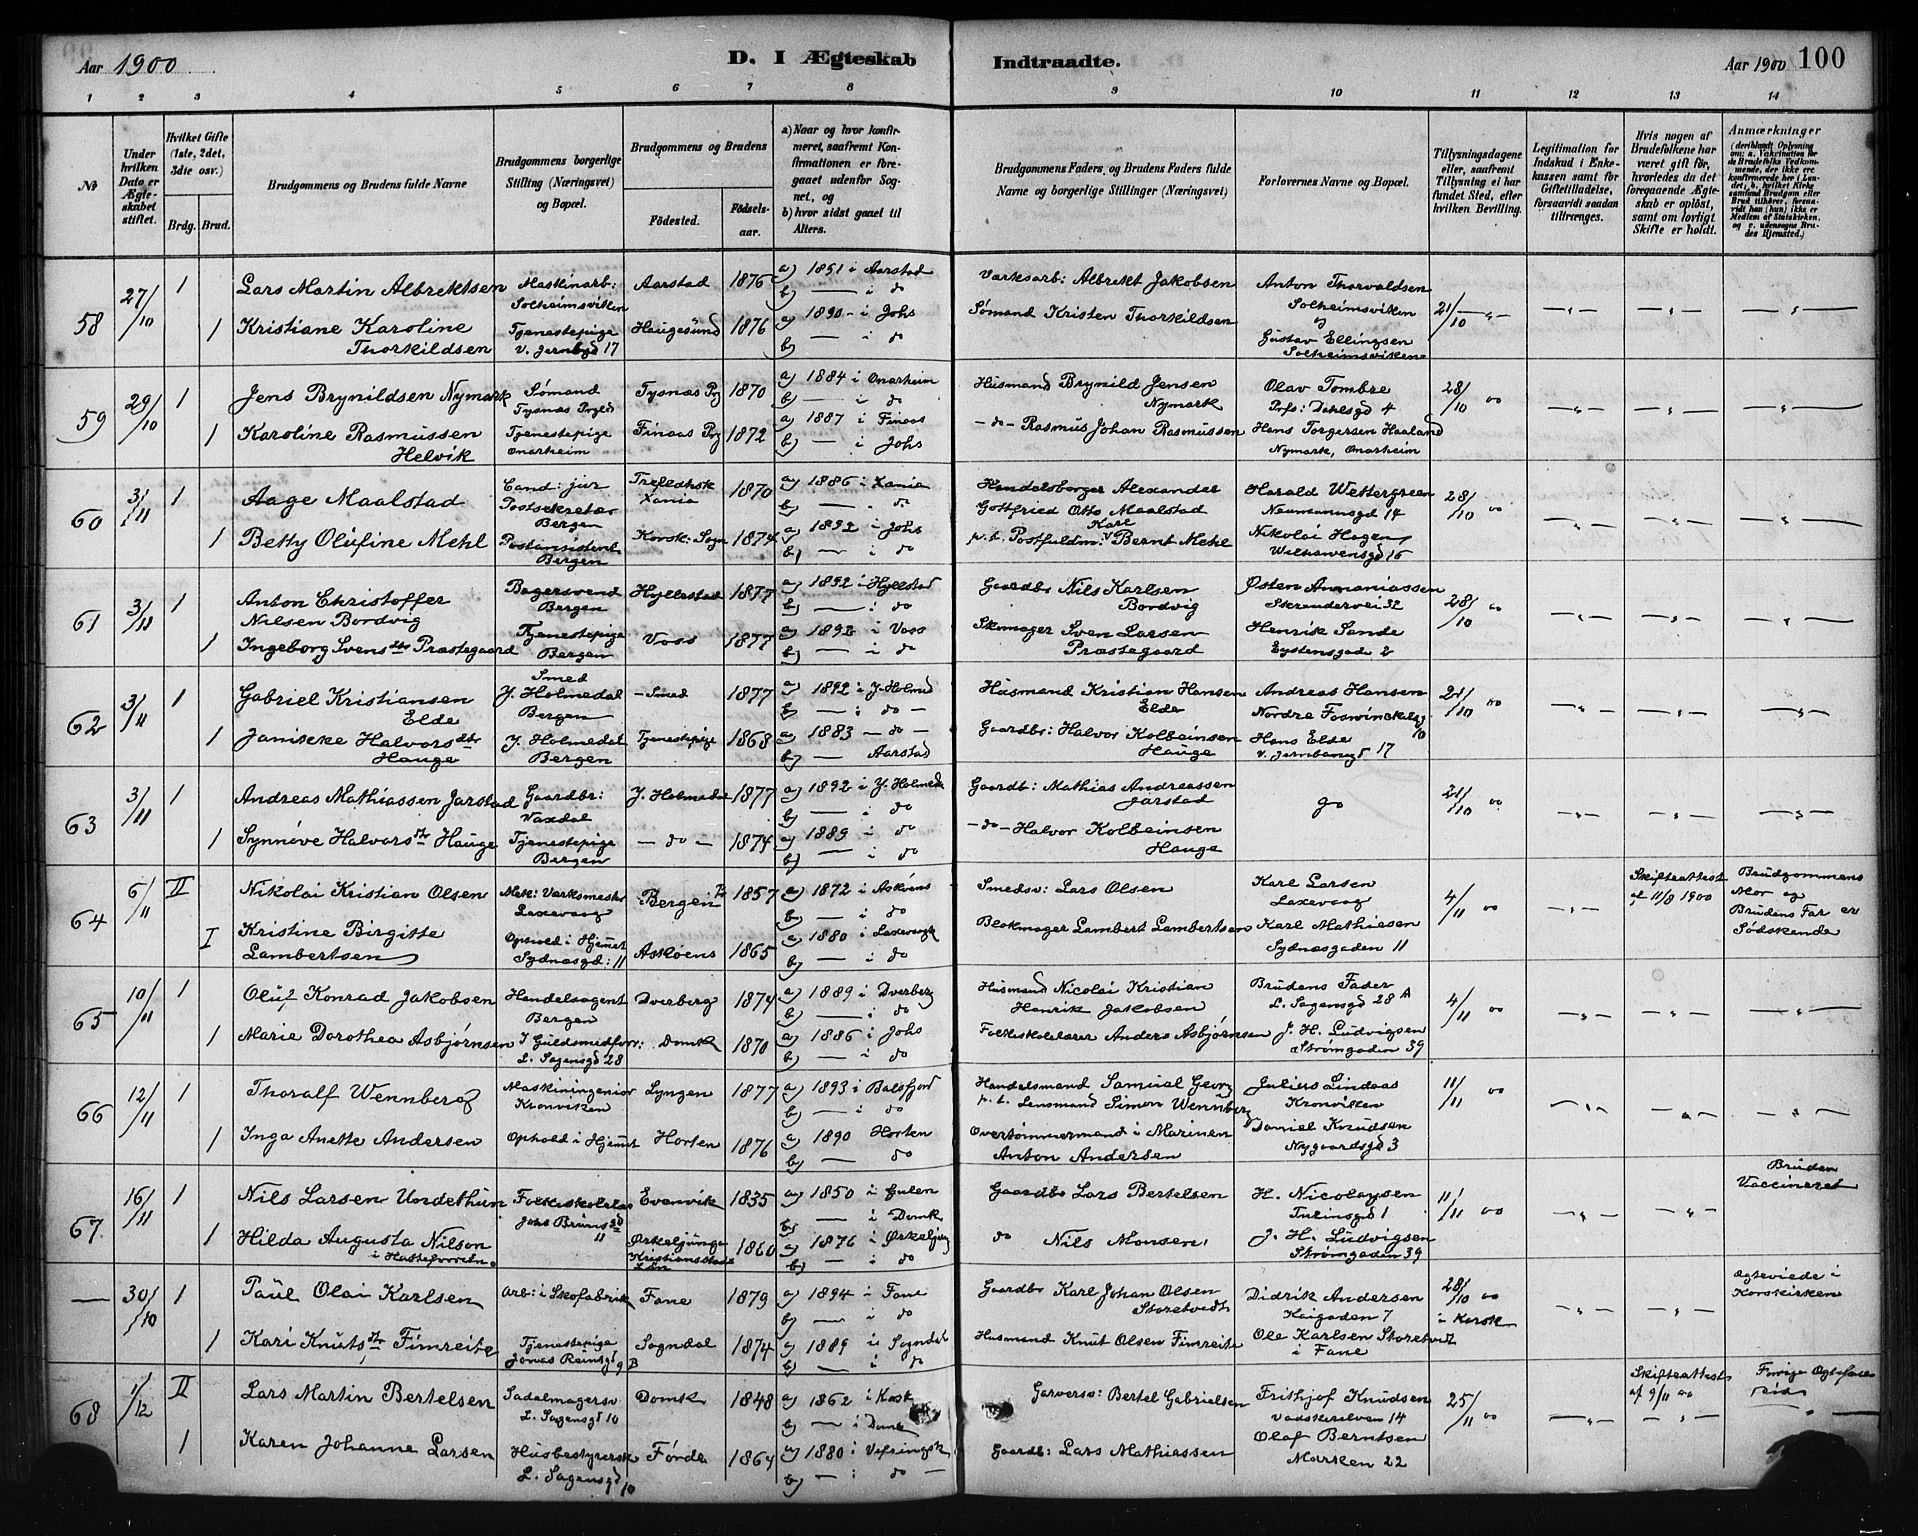 Aar 1900
D. I Ægteskab
Indtraadte.
Aar 1900 100
1 2 3 4 5 6 7 8 9 10 11 12 13 14
№
Under hvilken Dato er Ægteskabet stiftet.
Hvilket Gifte (1ste, 2det, 3die osv.)
Brdg. Brud.
Brudgommens og Brudens fulde Navne
Brudgommens borgerlige Stilling (Næringsvei) og Bopæl.
Brudgommens og Brudens
Fødested. Fødselsaar.
a) Naar og hvor konfirmeret, saafremt Konfirmationen er foregaaet udenfor Sognet, og
b) hvor sidst gaaet til Alters.
Brudgommens Faders og Brudens Faders fulde Navne og borgerlige Stillinger (Næringsvei)
Forlovernes Navne og Bopæl.
Tillysningsdagene eller, saafremt Tillysning ei har fundet Sted, efter hvilken Bevilling.
Legitimation for Indskud i Enkekassen samt for Giftetilladelse, forsaavidt saadan tiltrænges.
Hvis nogen af Brudefolkene har været gift før, hvorledes da det foregaaende Ægteskab er opløst, samt om lovligt Skifte er holdt.
Anmærkninger
58 27/10 1 Lars Martin Albrektsen Maskinarb: Solheimsviken Aarstad 1876 a) 1891 i Aarstad b) — i do Værksarb: Albrekt Jakobsen Anton Thorvaldsen Solheimsviken 21/10
1 Kristiane Karoline Thorkildsen Tjenestepige v. Jernbgd 17 Haugesund 1876 a) 1890 - i Johs b) — i do Sømand Kristen Thorkildsen og Gustav Ellingsen Solheimsviken
59 29/10 1 Jens Brynildsen Nymark Sømand Tysnæs Prgld Tysnæs Prg 1870 a) 1884 i Onarheim b) — i do Husmand Brynild Jensen Nymark Olav Tombre Prfs: Dahlsgd 4 28/10 00
1 Karoline Rasmussen Helvik Tjenestepige Onarheim Finaas Prg 1872 a) 1887 i Finaas b) — i Johs - do - Rasmus Johan Rasmussen Hans Torgersen Haaland Nymark, Onarheim
60 3/11 1 Aage Maalstad Cand: jur Postsekretær Bergen Trefldhsk Xania 1870 a) 1886 i Xania b) — . do Handelsborger Alexander Gottfried Otto Maalstad Harald Wettergreen Neumannsgd 14 28/10 00
1 Betty Olufine Mehl Postassistent Bergen Korsk: Sogn 1874 a) 1892 i Johs b) — i do p. t. Postfuldm: Karl Bernt Mehl Nikolai Hagen
61 3/11 1 Anton Christoffer Nilsen Bordvig Bagersvend Bergen Hyllestad 1877 a) 1892 i Hyllstad b) — i do Gaardbr Nils Karlsen Bordvig Østen Ananiassen 28/10 00
1 Ingeborg Svens dtr Præstegaard Tjenestepige Bergen Voss 1877 a) 1892 i Voss b) — i do Skomager Sven Larsen Præstegaard Henrik Sande Eystensgade 2
62 3/11 1 Gabriel Kristiansen Elde Smed Y. Holmedal Bergen - Smed 1877 a) 1892 i Y. Holmd b) — i do — Husmand Kristian Hansen Elde Andreas Hansen 21/10 00
1 Janikke Halvors dtr Hauge Y. Holmedal Bergen Tjenestepige 1868 a) 1883 - do - b) — Aarstad Gaardbr: Halvor Kolbeinsen Hauge Hans Elde v. Jernbanegd 17
63 3/11 1 Andreas Mathiassen Jarstad Gaardbr: Vaxdal Y. Holmedal 1877 a) 1892 i Y. Holmedl b) — i do Gaardb: Mathias Andreassen Jarstad do 21/10 00
1 Synnøve Halvors dtr Hauge Tjenestepige Bergen - do - 1874 a) 1889 i do b) — i do - do - Halvor Kolbeinsen Hauge
64 6/11 II Nikolai Kristian Olsen Mek: Værksmester Laxevaag Bergen 1857 a) 1872 i Askøens b) — i do Smedsv: Lars Olsen Karl Larsen Laxevaag 4/11 00 Skifteattest af 11/8 1900 Brudgommens Mor og Brudens Far er Sødskende
I Kristine Birgitte Lambertsen Ophold i Hjemmet Sydnæsgd: 11 Askøens 1865 a) 1880 i Laxevaag b) — i do Blokmager Lambert Lambertsen Karl Mathiesen Sydnæsgaden 11
65 10/11 1 Oluf Konrad Jakobsen Handelsagent Bergen Dverberg 1874 a) 1889 i Dverberg b) — i do Husmand Nicolai Kristian Henrik Jakobsen Brudens Fader L. Sagensgd 28 A 4/11 00
1 Marie Dorothea Asbjørnsen I Guldsmedforr: L. Sagensgd 28 Domk 1870 a) 1886 i Johs b) — i do Folkeskolelærer Anders Asbjørnsen J. H. Ludvigsen Strømgaden 39
66 12/11 1 Thoralf Wennberg Maskiningeniør Kronviken Lyngen 1877 a) 1893 i Balsfjord b) — i do Handelsmand Samuial Georg p. t. Lensmand Simon Wennberg Juliers Lindaas Kronviken 11/11 00
1 Inga Anette Andersen Ophold i Hjemmet Horten 1876 a) 1890 Horten b) — do Overtømmermand i Marinen Anton Andersen Daniel Knudsen Nygaardsgd 3
67. 16/11 1 Nils Larsen Undethun Folkeskolelær Johs Brunsgd 11 Evenvik 1835 a) 1850 i Gulen b) — i Domk Gaardbr Lars Bertelsen H. Nicolaysen Tulinsgd 1 11/11 00 Bruden Vaccineret
1 Hilda Augusta Nilson i Hatteforretn. Ørkeljunga Kristianstads Län 1860 a) 1876 i Ørkeljung b) — i do do Nils Monsen J. H. Ludvigsen Strømgaden 39
— 30/10 1 Paul Olai Karlsen Arb: i Skofabrik Fane 1879 a) 1894 i Fane b) — i do Gaardbr Karl Johan Olsen Storetvedt Didrik Andersen Haigaden 7 28/10 00 i Korsk Ægteviede i Korskirken
1 Kari Knuts dtr Fimreite Tjenestepige Jonas Reinsgd 9 B Sogndal 1874 a) 1889 i Sogndal b) — i do Husmand Knut Olsen Fimreite Ole Karlsen Storetvedt i Fane
68 1/12 II Lars Martin Bertelsen Sadelmagersv L. Sagensgd 10 Domk 1848 a) 1862 i Korsk b) — i Domk Garversv: Bertel Gabrielsen Frithjof Knudsen Vadskerelven 14 25/11 00 Skifteattest af 9/11 00 Forrige Ægtefælle død
1 Karen Johanne Larsen Husbestyrersk L. Sagensgd 10 Førde 1864 a) 1880 i Vefringsk b) — i do — Gaardb: Lars Mathiassen Olaf Berntsen Marken 22